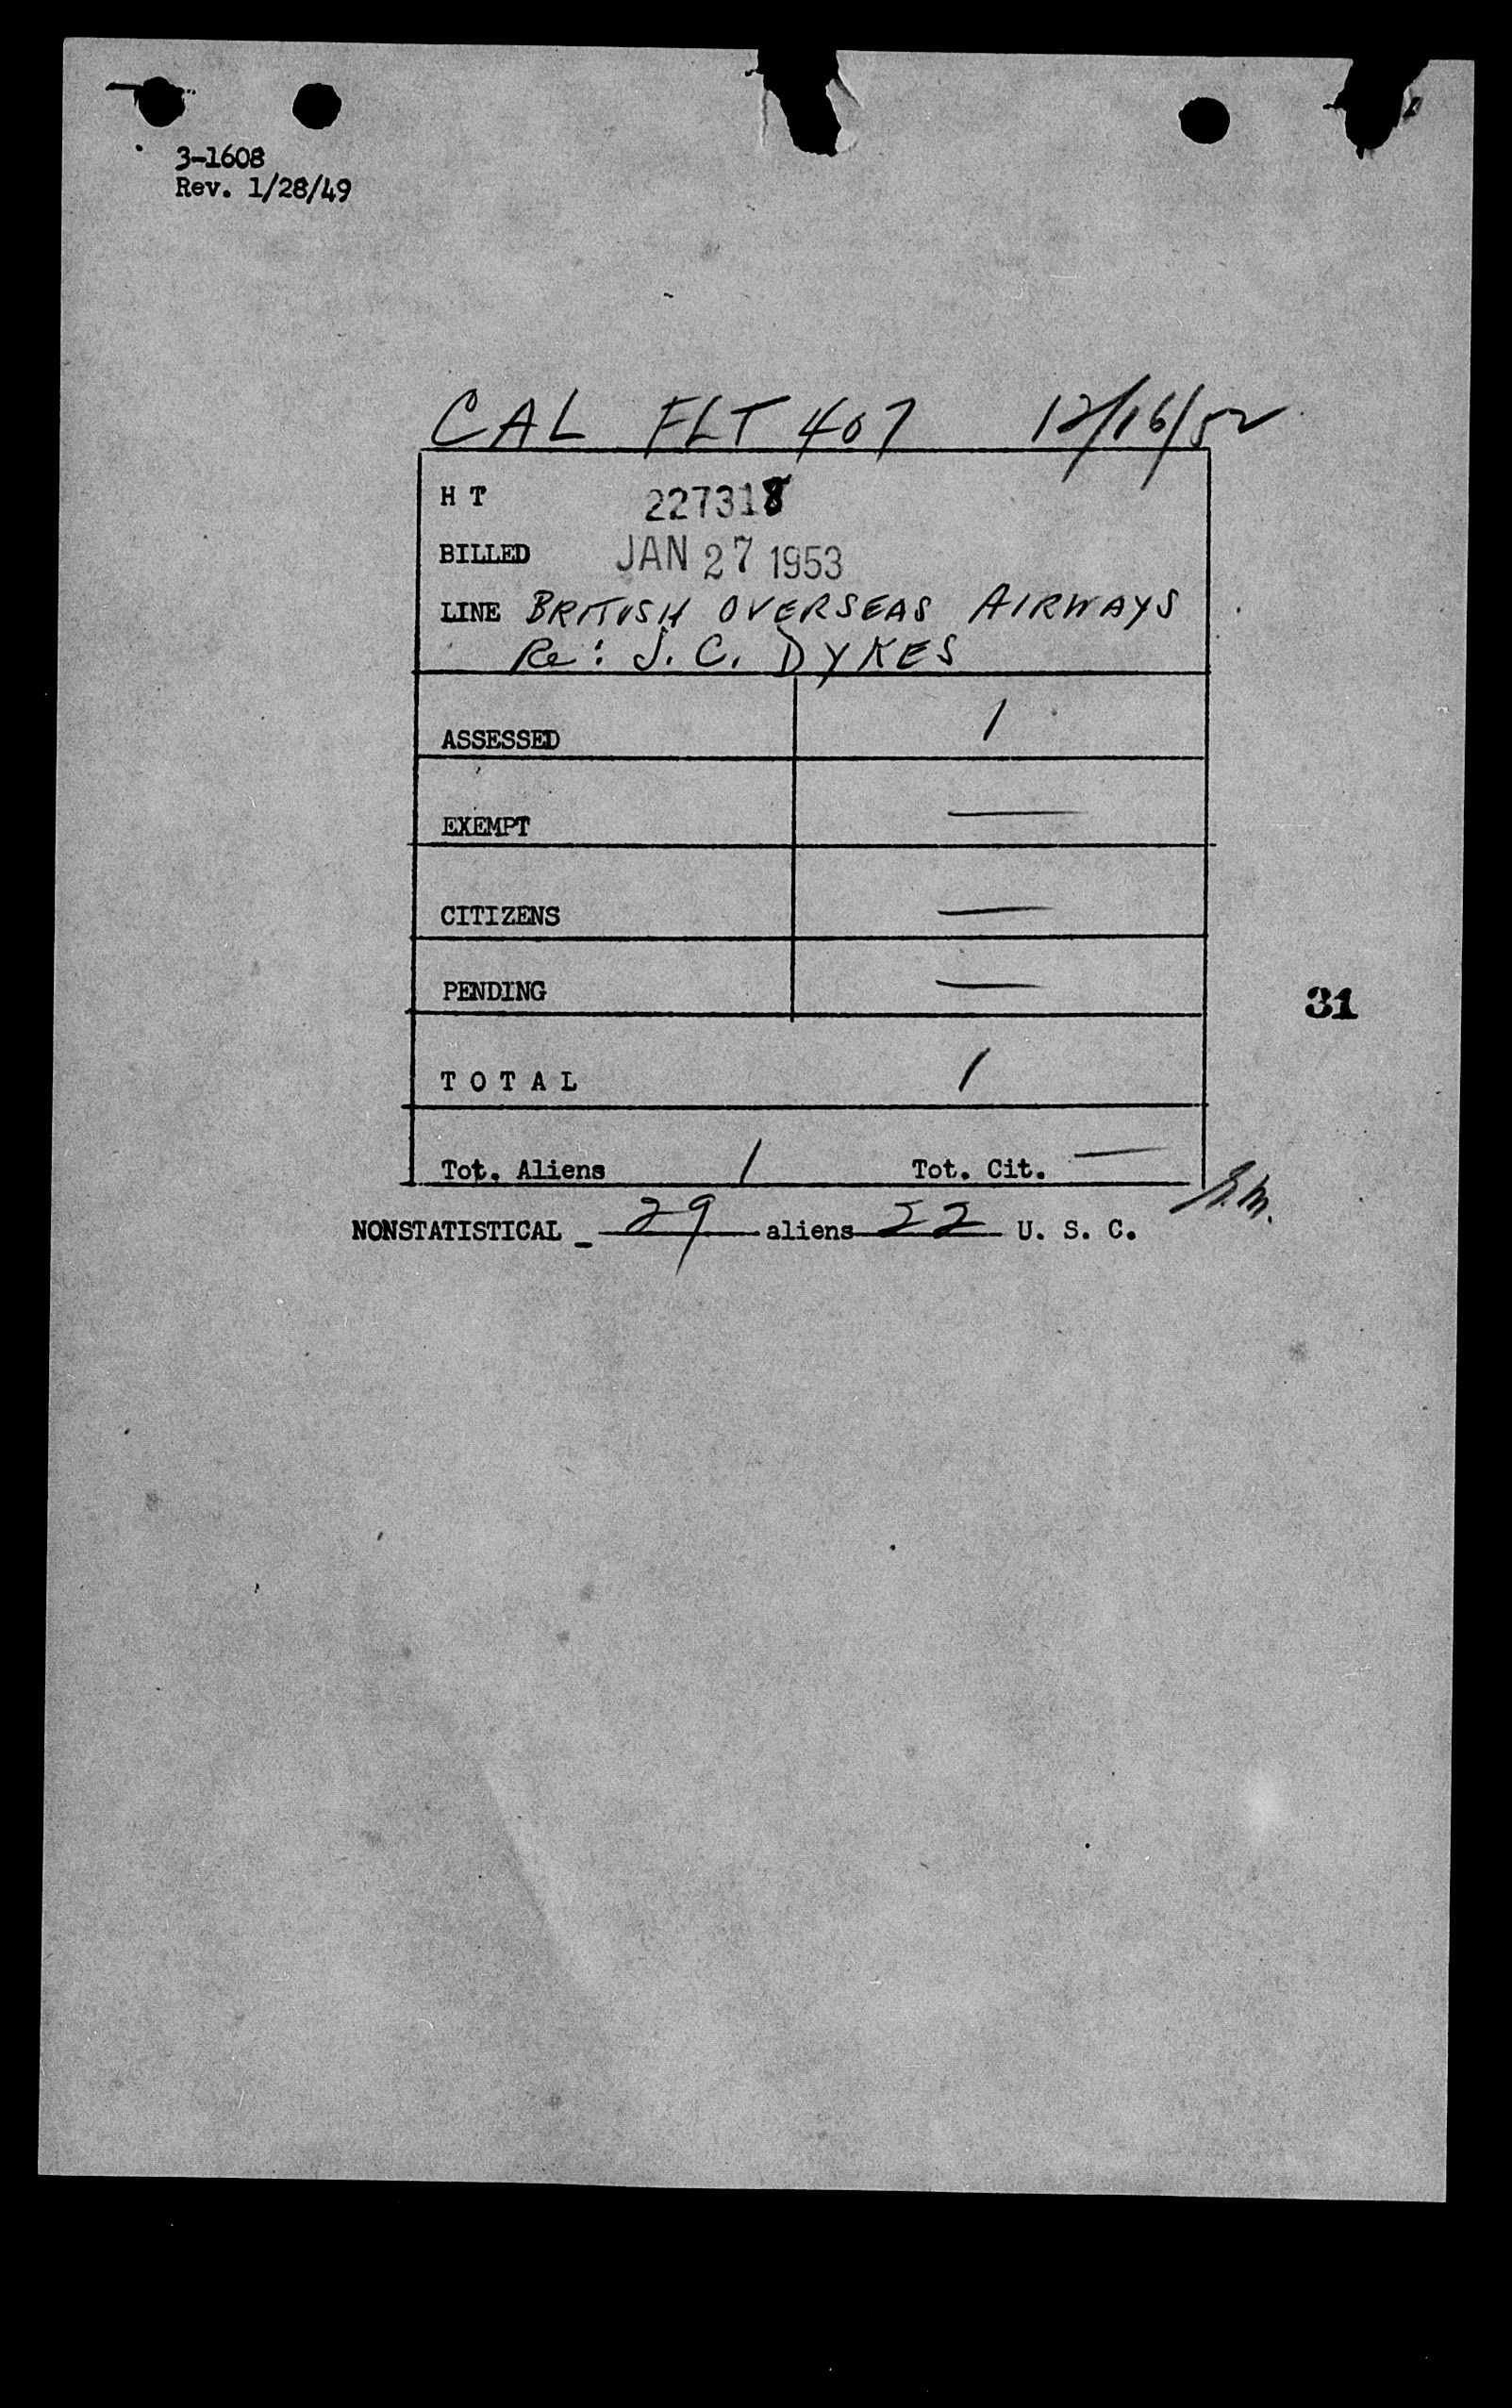 3-1608
Rev. 1/28/49
CAL FLT 407 12/16/52
H T 227318
BILLED JAN 27 1953
LINE BRITISH OVERSEAS AIRWAYS
Re: J. C. DYKES
ASSESSED 1
EXEMPT —
CITIZENS —
PENDING —
31
T O T A L 1
Tot. Aliens 1 Tot. Cit. —
NONSTATISTICAL - 29 aliens 22 U. S. C.